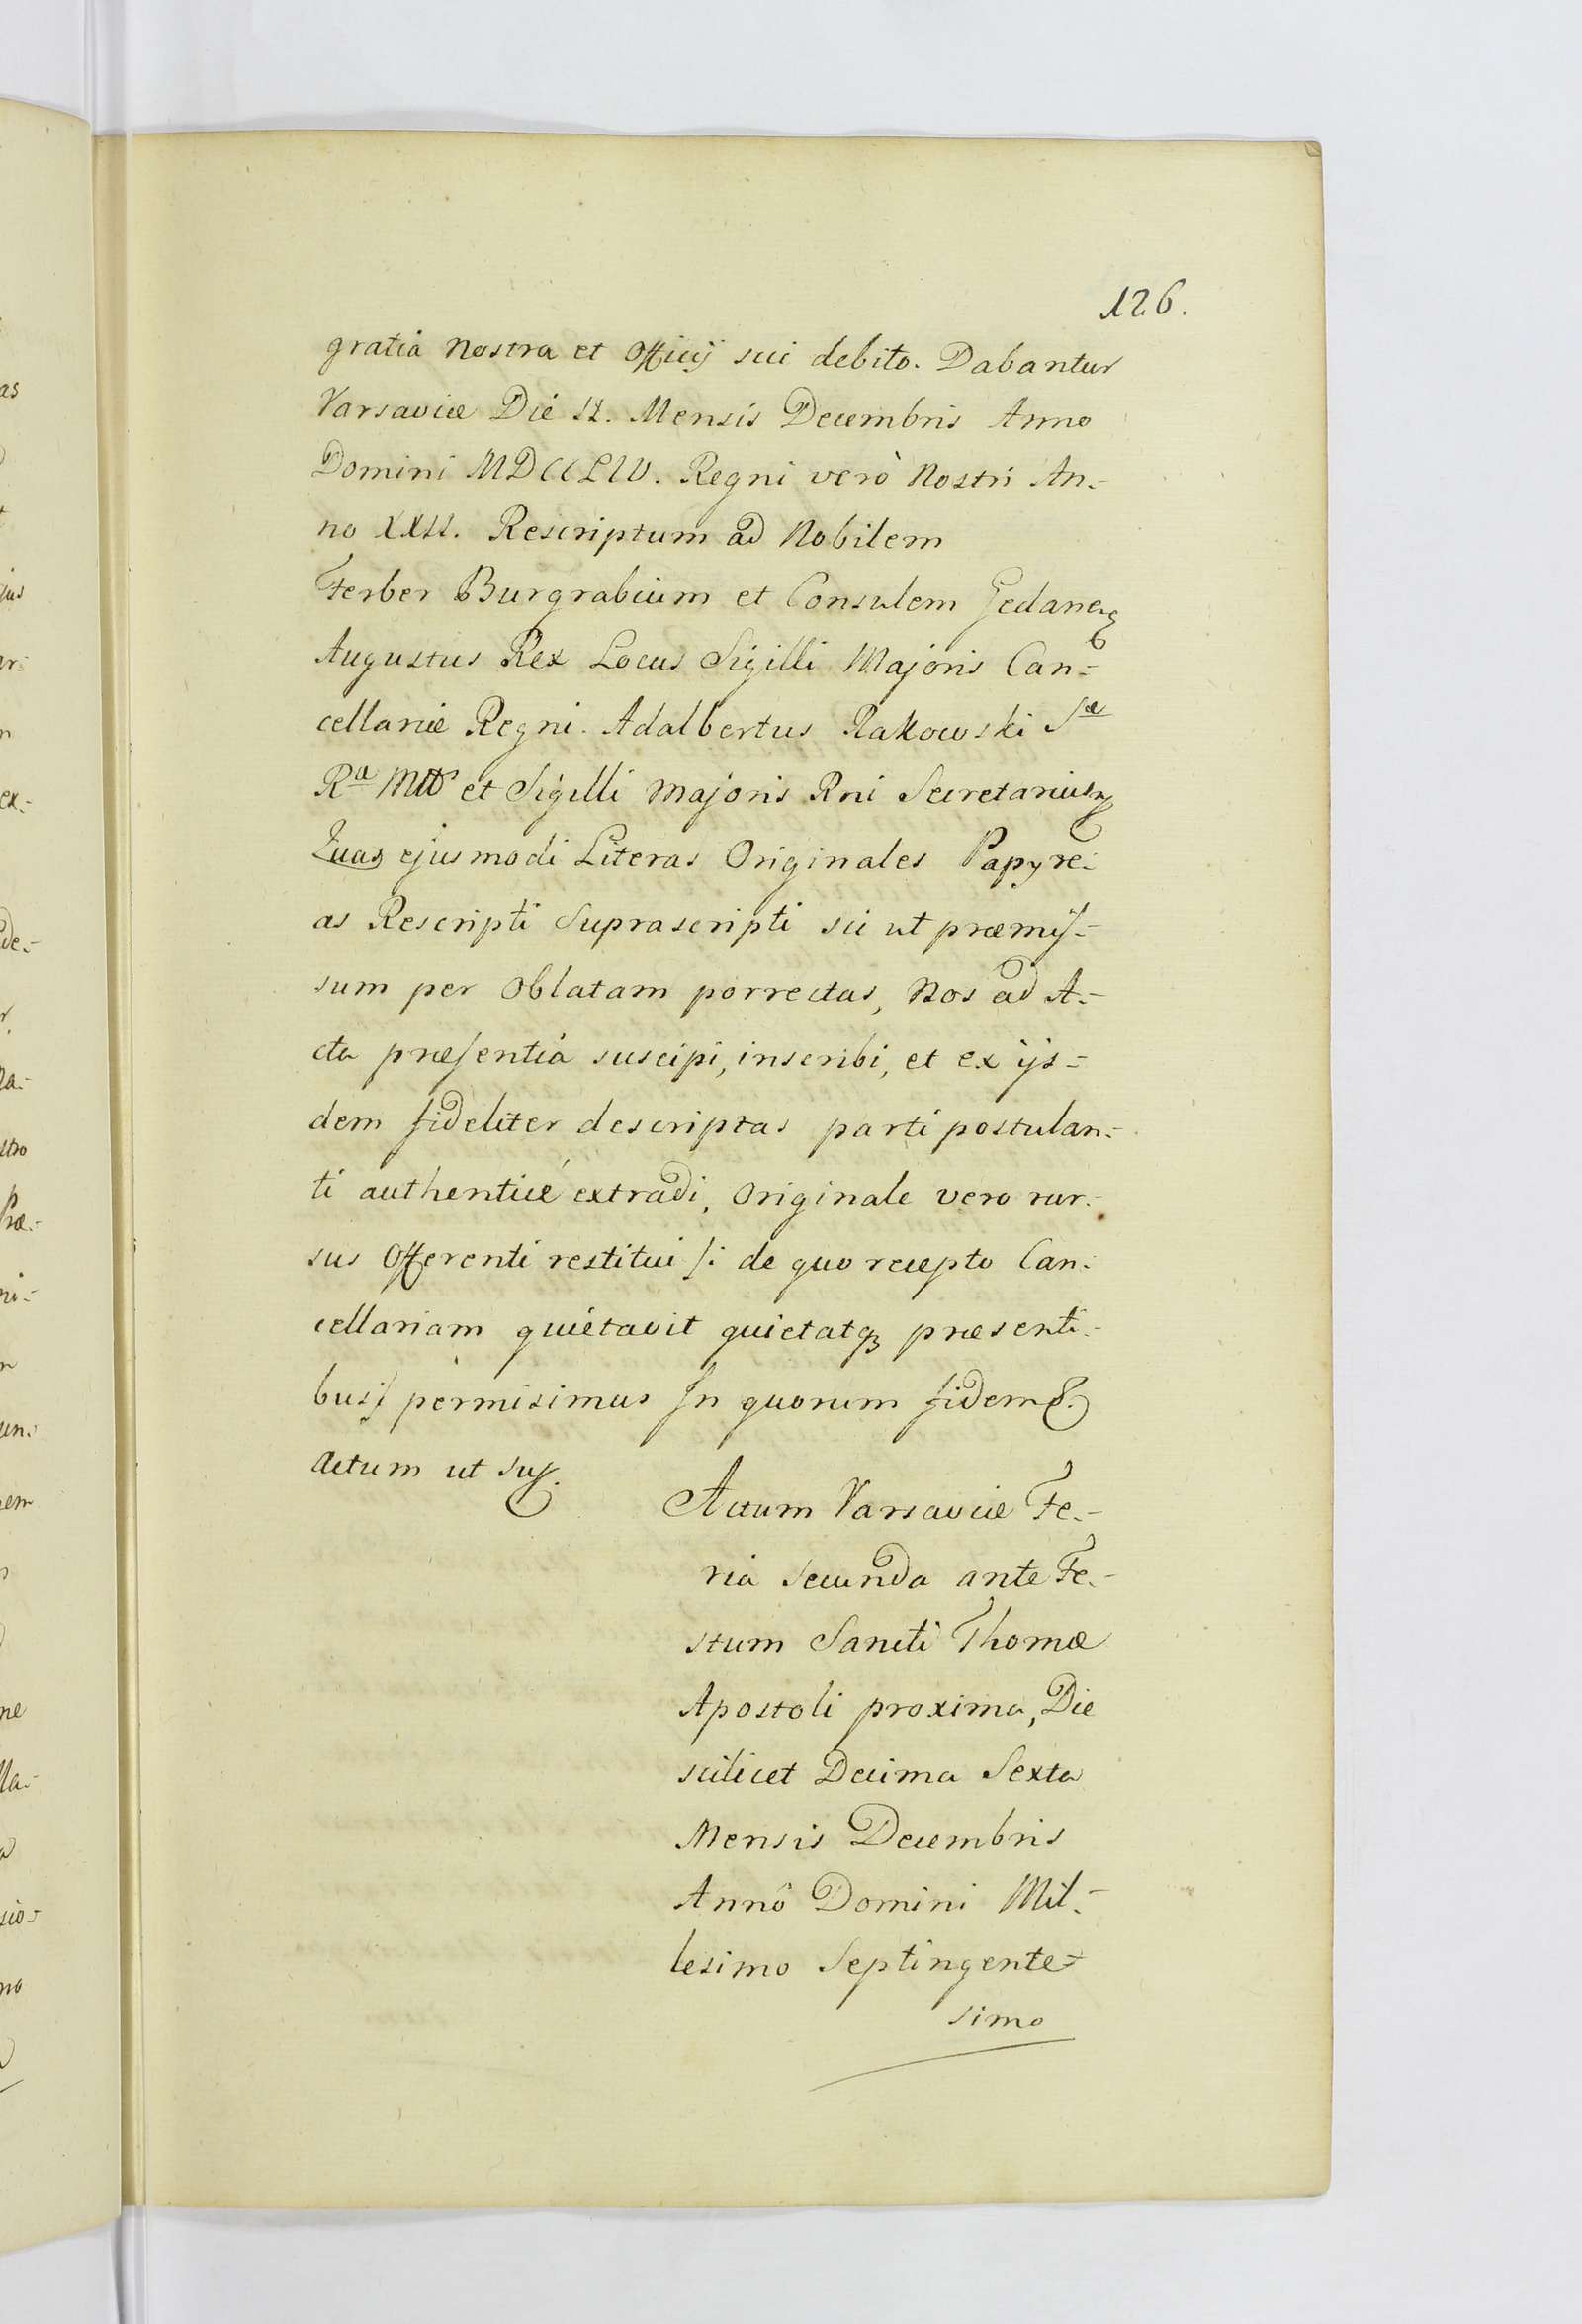 126.
gratia Nostra et Officij sui debito. Dabantur
Varsaviæ Die II. Mensis Decembris Anno
Domini MDCCLIV. Regni verò Nostri An-
no XXII. Rescriptum ad Nobilem
Ferber Burgrabium et Consulem Gedane
Augustus Rex Locus Sigilli Majoris Can-
cellariæ Regni. Adalbertus Rakowski Sæ
Ra Mtts et Sigilli Majoris Rni Secretarius
Quas ejusmodi Literas Originales Papyre-
as Rescripti Suprascripti sic ut præmis-
sum per Oblatam porrectas, Nos ad A-
cta præsentia suscipi, inscribi, et ex ijs-
dem fideliter descriptas parti postulan-
ti authenticè extradi, Originale vero rur-
sus Offerenti restitui /: de quo recepto Can-
cellariam quietavit quietatq præsenti-
bus:/ permisimus In quorum fidem &.
Actum ut sup.
Actum Varsaviæ Fe-
ria Secunda ante Fe-
stum Sancti Thomæ
Apostoli proxima, Die
scilicet Decima Sexta
Mensis Decembris
Annô Domini Mil-
lesimo Septingente-
simo
as
jus
ar-
ex-
de-
r.
na-
stro
Præ-
ni-
un-
em
ne
lla-
sio-
no